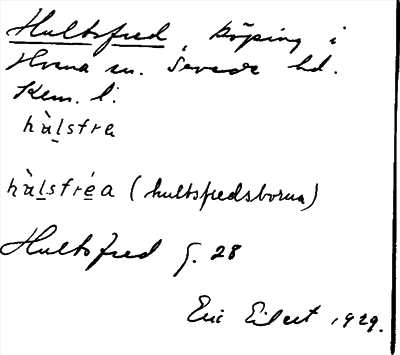 Hultsfred, köping i
Hvena sn. Sevede hd.
Kem. l.
hùlstra
hùlsfréa (hultsfredsborna)
Hultsfred s. 28
Eric Eilert 1929.